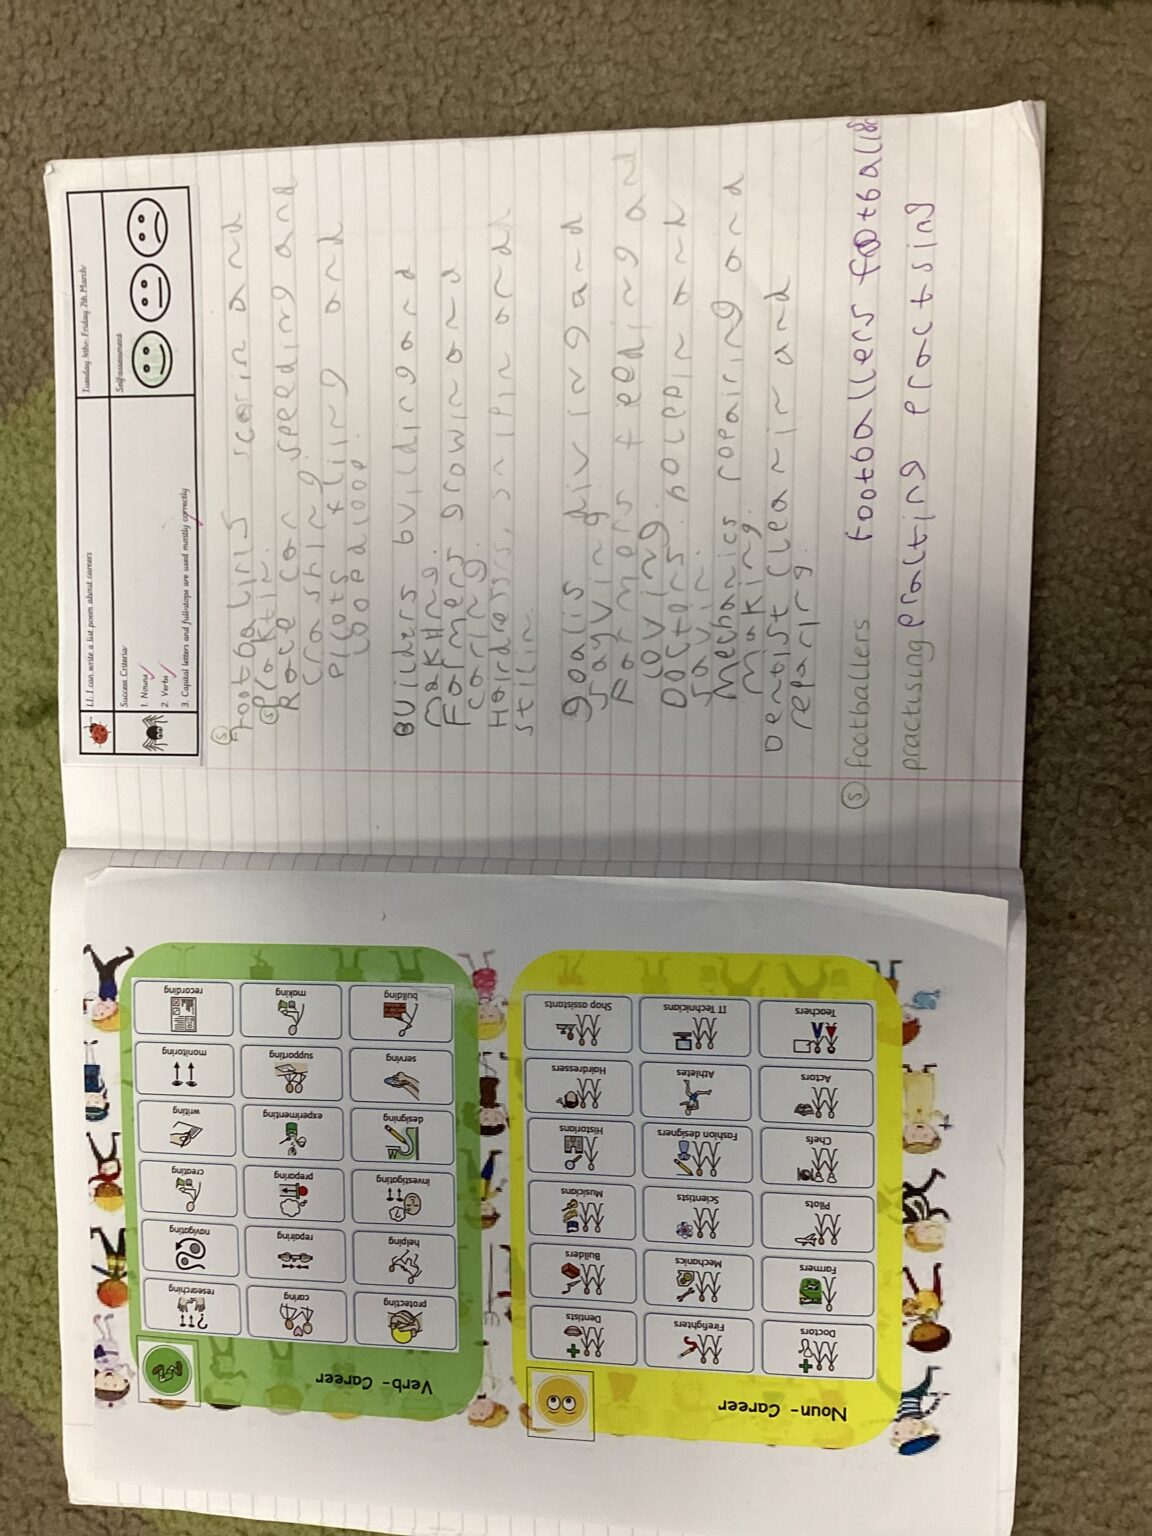 LI. I can write a list poem about careers
Tuesday 4th - Friday 7th March
Success Criteria:
Self-assessment
1. Nouns
2. Verbs
3. Capital letters and full-stops are used mostly correctly
scorin and
Race car speeding and
crashing.
Pilots and
Builders building and
Farmers growin and
caring.
snipin and
stilin
goalis divin g and
Farmers feeding and
loving.
Docters helpin and
savin.
Mechanics repairing and
making.
Dentist clearin and
reparing.
S footballers footballers
practising practsing
Verb - Career
protecting
caring
researching
helping
repairing
navigating
investigating
preparing
creating
designing
experimenting
writing
serving
supporting
monitoring
building
making
recording
Noun - Career
Doctors
Firefighters
Dentists
Farmers
Mechanics
Builders
Pilots
Scientists
Musicians
Chefs
Fashion designers
Historians
Actors
Athletes
Hairdressers
Teachers
IT Technicians
Shop assistants